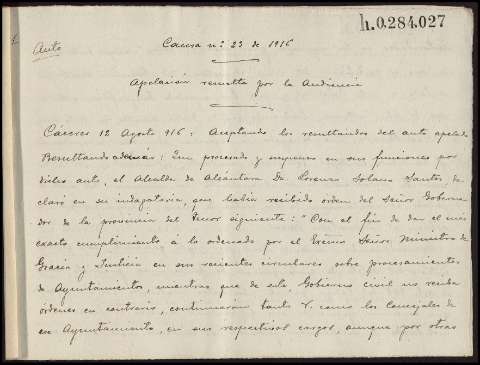 h.0.284.027
Auto
Causa n.º 23 de 1916
Apelación resuelta por la Audiencia
Cáceres 12 Agosto 916: Aceptando los resultandos del auto apelado
Resultando además: Que procesado y suspenso en sus funciones por
dicho auto, el Alcalde de Alcántara Dn. Lorenzo Solano Santos de
claró en su indagatoria, que había recibido orden del Señor Goberna
dor de la provincia del tenor siguiente: "Con el fin de dar el más
exacto cumplimiento a lo ordenado por el Excmo Señor Ministro de
Gracia y Justicia en sus recientes circulares sobre procesamientos
de Ayuntamientos, mientras que de este Gobierno civil no reciba
órdenes en contrario, continuarán tanto V. como los Concejales de
ese Ayuntamiento, en sus respectivos cargos, aunque por otras